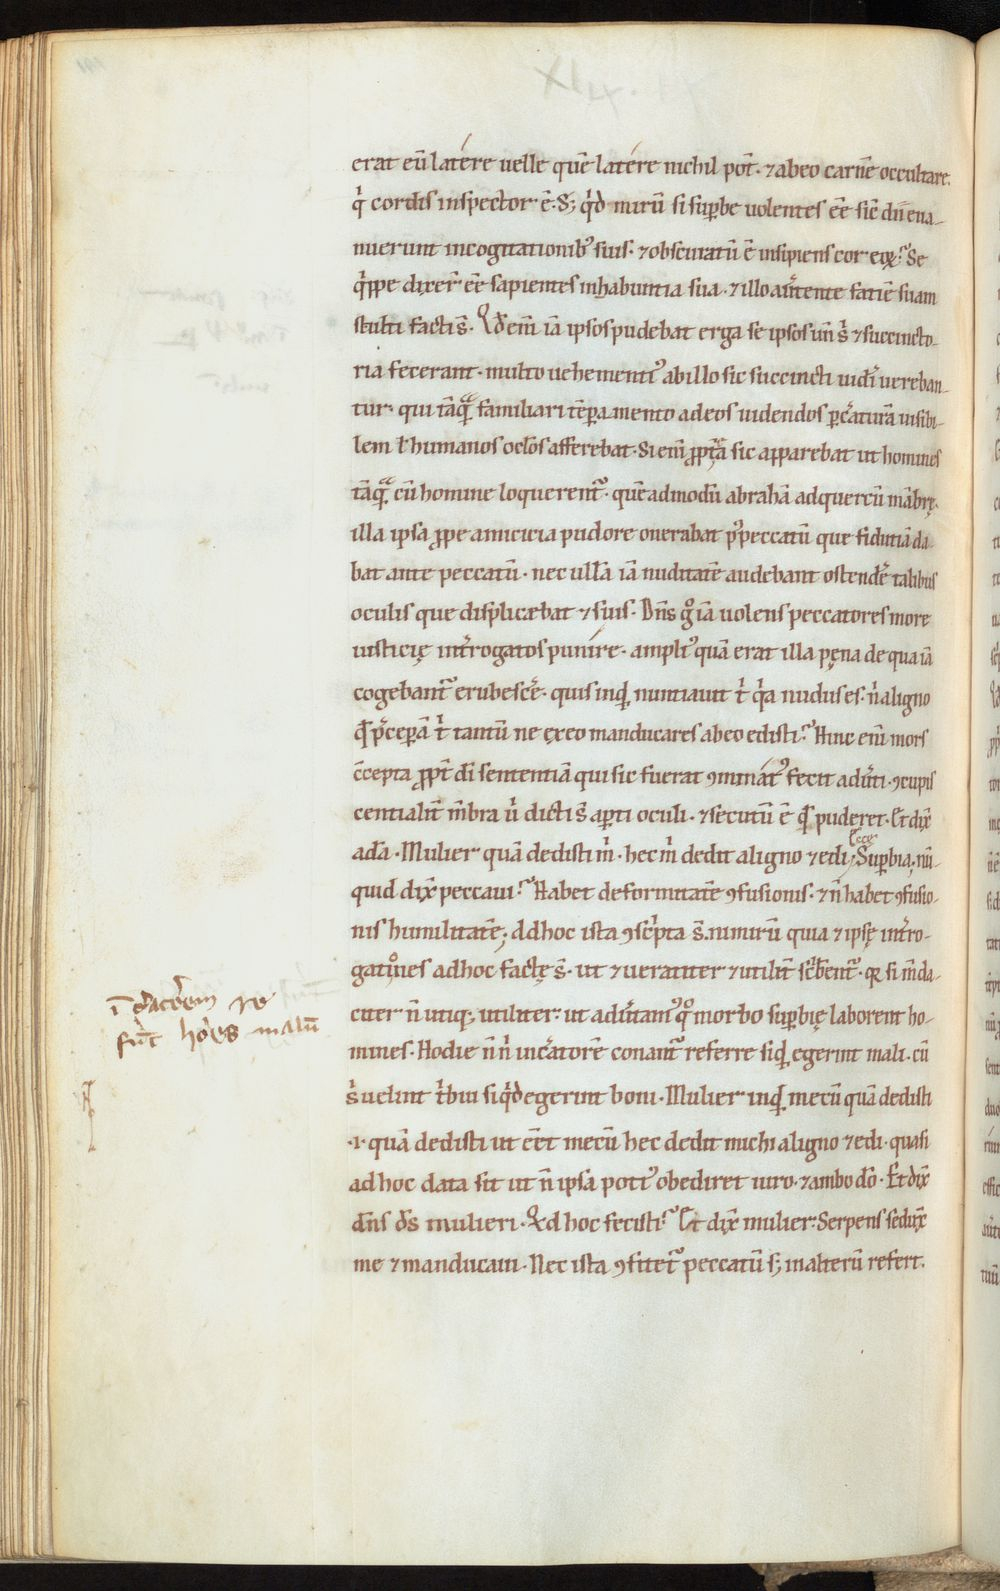 erat eū latere uelle quē latere nichil pot̄. ⁊ abeo carnē occultare.
qͥ cordis inspector ē. S; qͥd mirū si suꝑbe uolentes eē sic̄ dii eua-
nuerunt incogitationibꝰ suis. ⁊ obscuratū ē insipiens cor eoꝝ? Se
qͥppe dixer̄ eē sapientes inhabuntia sua. ⁊ illo auͬtente faciē suam
stulti facti s̄. Qd̓ enī iā ipsos pudebat erga se ipsos un̄ s̓ ⁊ succincto-
ria fecerant. multo uehementiꝰ abillo sic succincti uidͥi uereban-
tur. qui tāqͣ familiari tēꝑamento adeos uidendos ꝑ cͬaturā uisibi-
lem ł humanos ocl̓os afferebat. Si enī ꝓpt̓ea sic apparebat ut homines
tāqͣ cū homine loquerent᷑. quēadmodū abrahā adquercū mābrę.
illa ipsa ꝓpe amicicia pudore onerabat pꝰ peccatū que fidutiā da-
bat ante peccatū. nec ullā iā nuditatē audebant ostend̓e talibus
oculis que displicæbat ⁊ suis. Dn̄s gͦ iā uolens peccatores more
iusticię int̓rogatos punire. ampliꝰ quā erat illa pęna de qua iā
cogebant᷑ erubesc̓e. quis inqͥd nuntiauit t̓ qͥa nudus es. n̓ aligno
qd̓ p̓ceꝑā t̓ tantū ne exeo manducares abeo edisti? Hinc enī mors
c̄cepta ꝓpt̓ dī sententiā qui sic fuerat ꝯminatꝰ fecit aduͬti. ꝯcupis
centialit̓ m̄bra u̓ dicti s̄ aꝑti oculi. ⁊ secutū ē qd̓ puderet. Et dix̄
adā. Mulier quā dedisti m̓. hec m̓ dedit aligno ⁊ edi; Ecce Suꝑbia; nū-
quid dix̄ peccaui? Habet deformitatē ꝯfusionis. ⁊ n̄ habet ꝯfusio-
nis humilitatē; Adhoc ista ꝯsc̓pta s̄. nimirū quia ⁊ ipsę int̓ro-
gationes adhoc factę s̄. ut ⁊ ueraciter ⁊ utilit̓ sc̓bent᷑. qꝛ si m̄da-
citer n̄ utiqꝫ utiliter. ut aduͬtanꝰ qͦ morbo suꝑbię laborent ho-
mines. Hodie n̄ n̓ incͬatorē conant᷑ referre siqd̓ egerint mali. cū
s̓ uelint t̓bui siqͥd egerint boni. Mulier inqͥd mecū quā dedisti
.i. quā dedisti ut eēt mecū hec dedit michi aligno ⁊ edi. quasi
adhoc data sit ut n̄ ipsa potiꝰ obediret uiro. ⁊ ambo dō. Et dix̄
dn̄s ds̄ mulieri. Qd̓ hoc fecisti? Et dix̄ mulier: Serpens sedux̄
me ⁊ manducaui. Nec ista ꝯfitet᷑ peccatū s; inalterū refert.
ho̓es malū